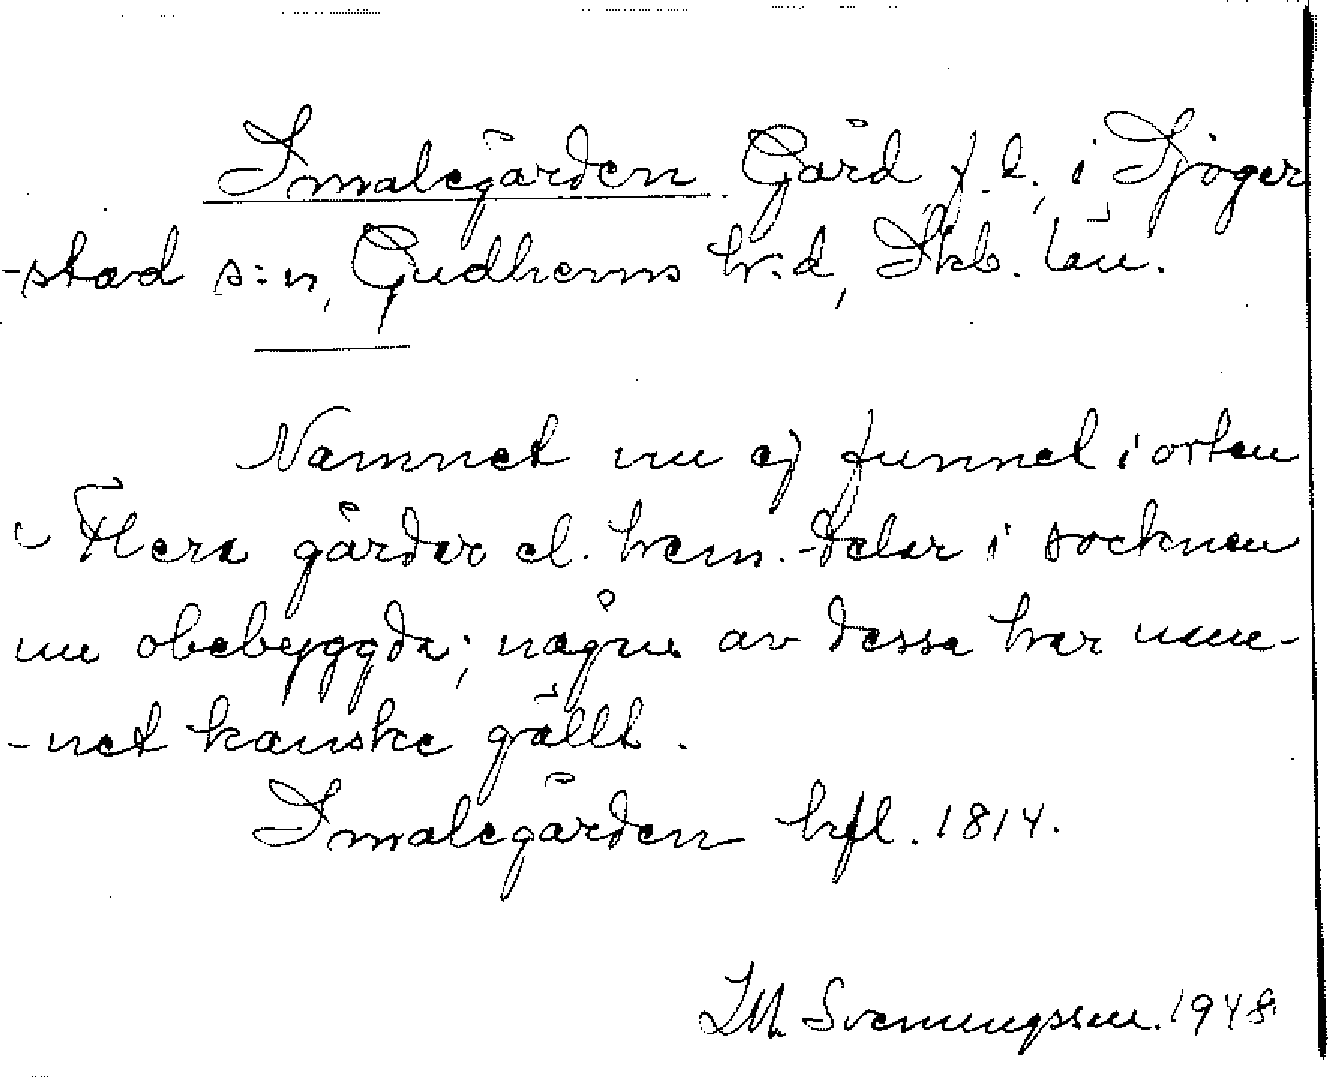 Smalegården Gård f. l. i Sjöger
-stad s:n, Gudhems h:d, Skb. län.
Namnet nu ej funnet i orten
Flera gårdar el. hem.-delar i socknen
nu obebyggda; några av dessa har nam-
-net kanske gällt.
Smalegården hfl. 1814.
Svenungsson. 1948